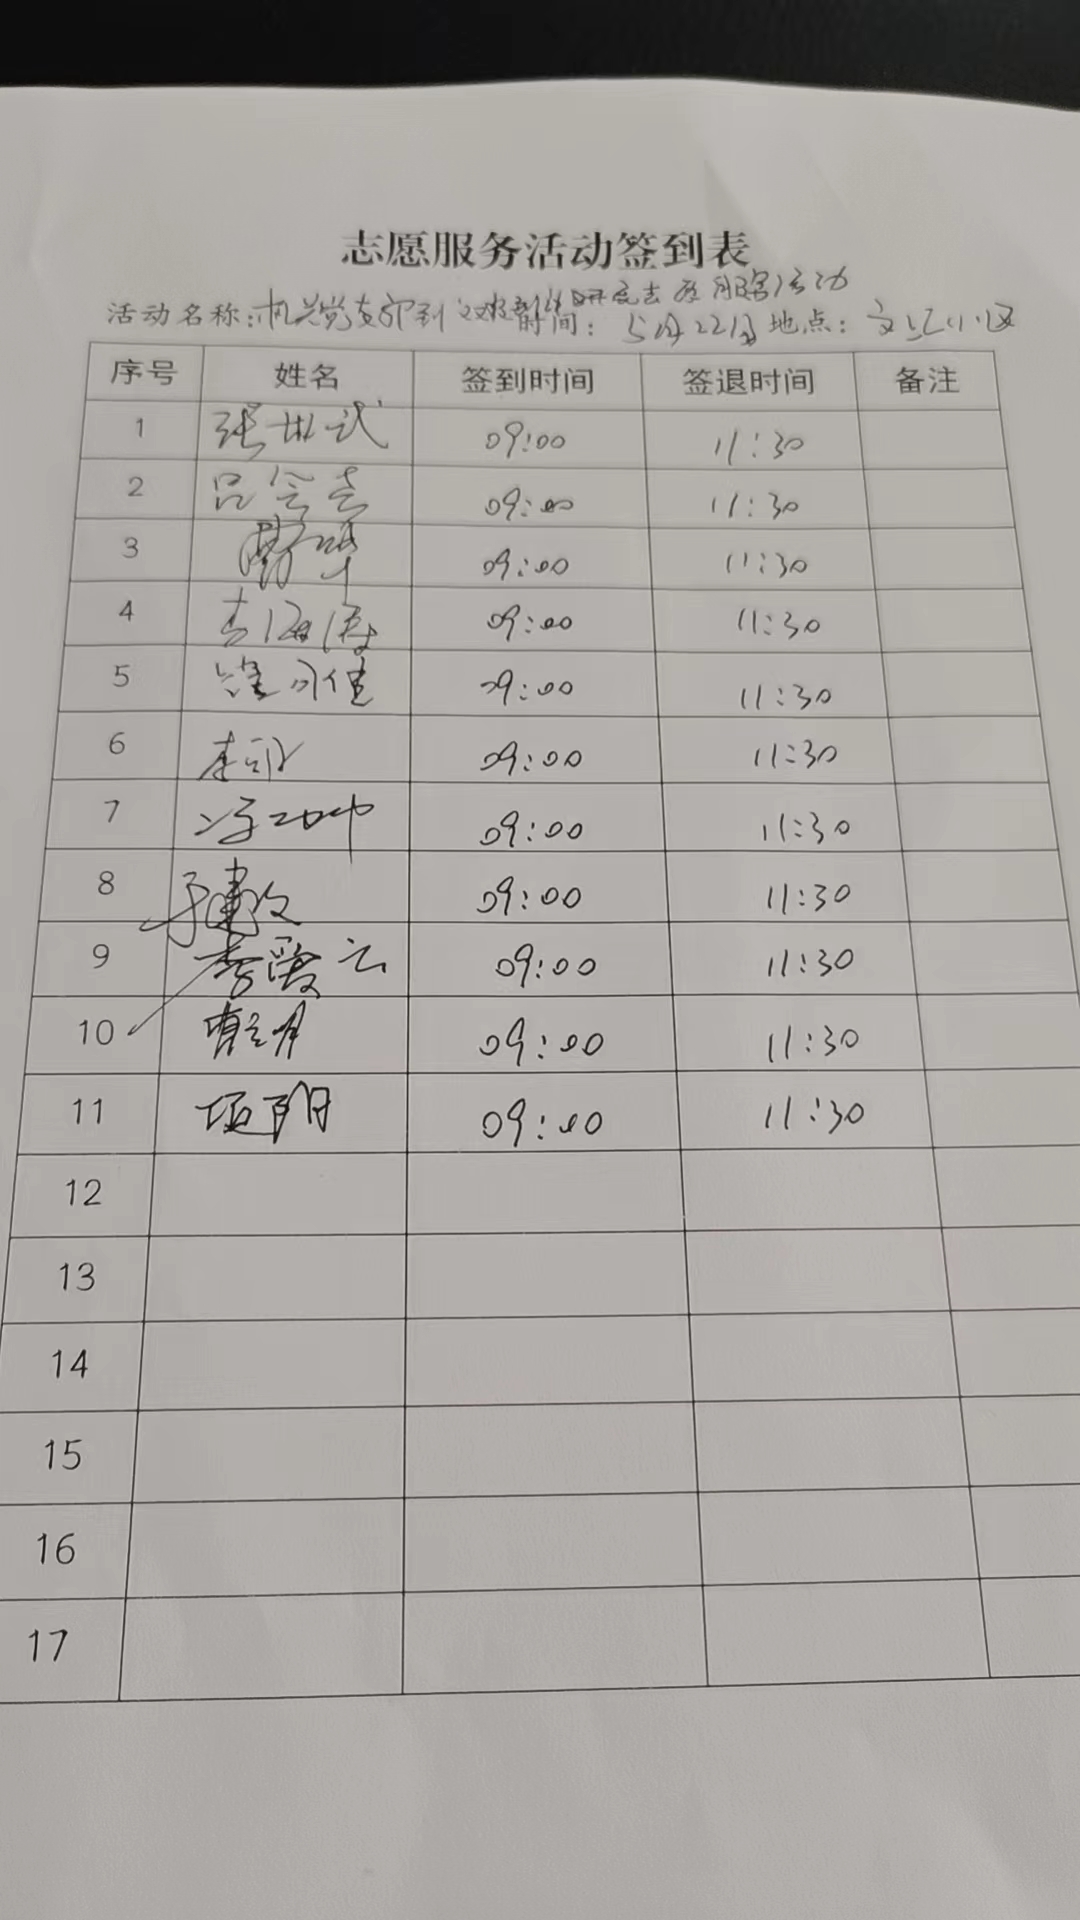 志愿服务活动签到表
活动名称：机关党支部到 志愿服务活动
时间：5月22日 地点：文汇小区
序号 姓名 签到时间 签退时间 备注
1 张世武 09:00 11:30
2 吕会吉 09:00 11:30
3 09:00 11:30
4 李海涛 09:00 11:30
5 09:00 11:30
6 09:00 11:30
7 09:00 11:30
8 于建文 09:00 11:30
9 李爱云 09:00 11:30
10 09:00 11:30
11 09:00 11:30
12
13
14
15
16
17